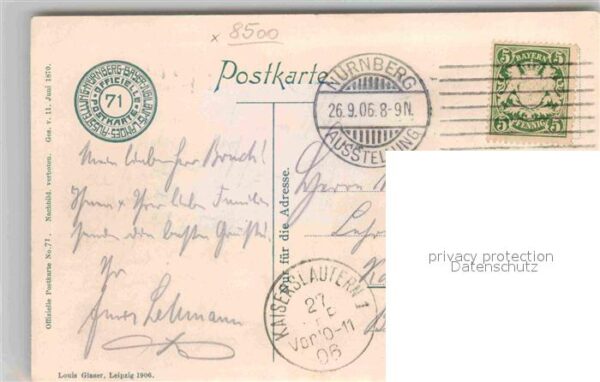 × 8500
Postkarte
AUSSTELLUNG-NÜRNBERG-BAYER-JUBIL-LANDES-
OFFICIELLE POSTKARTE
71
NÜRNBERG
26.9.06.8-9N.
(AUSSTELLUNG)
5 BAYERN 5
5 PFENNIG 5
Mein lieber Herr Bruch!
Ihnen & Ihrer lieben Familie
sende die besten Grüße!
Ihr
Lehmann
Nur für die Adresse.
Herrn
KAISERSLAUTERN 1
27
Vor 10-11
06
privacy protection
Datenschutz
Offizielle Postkarte No. 71. Nachbild. verboten. Ges. v. 11. Juni 1870.
Louis Glaser, Leipzig 1906.